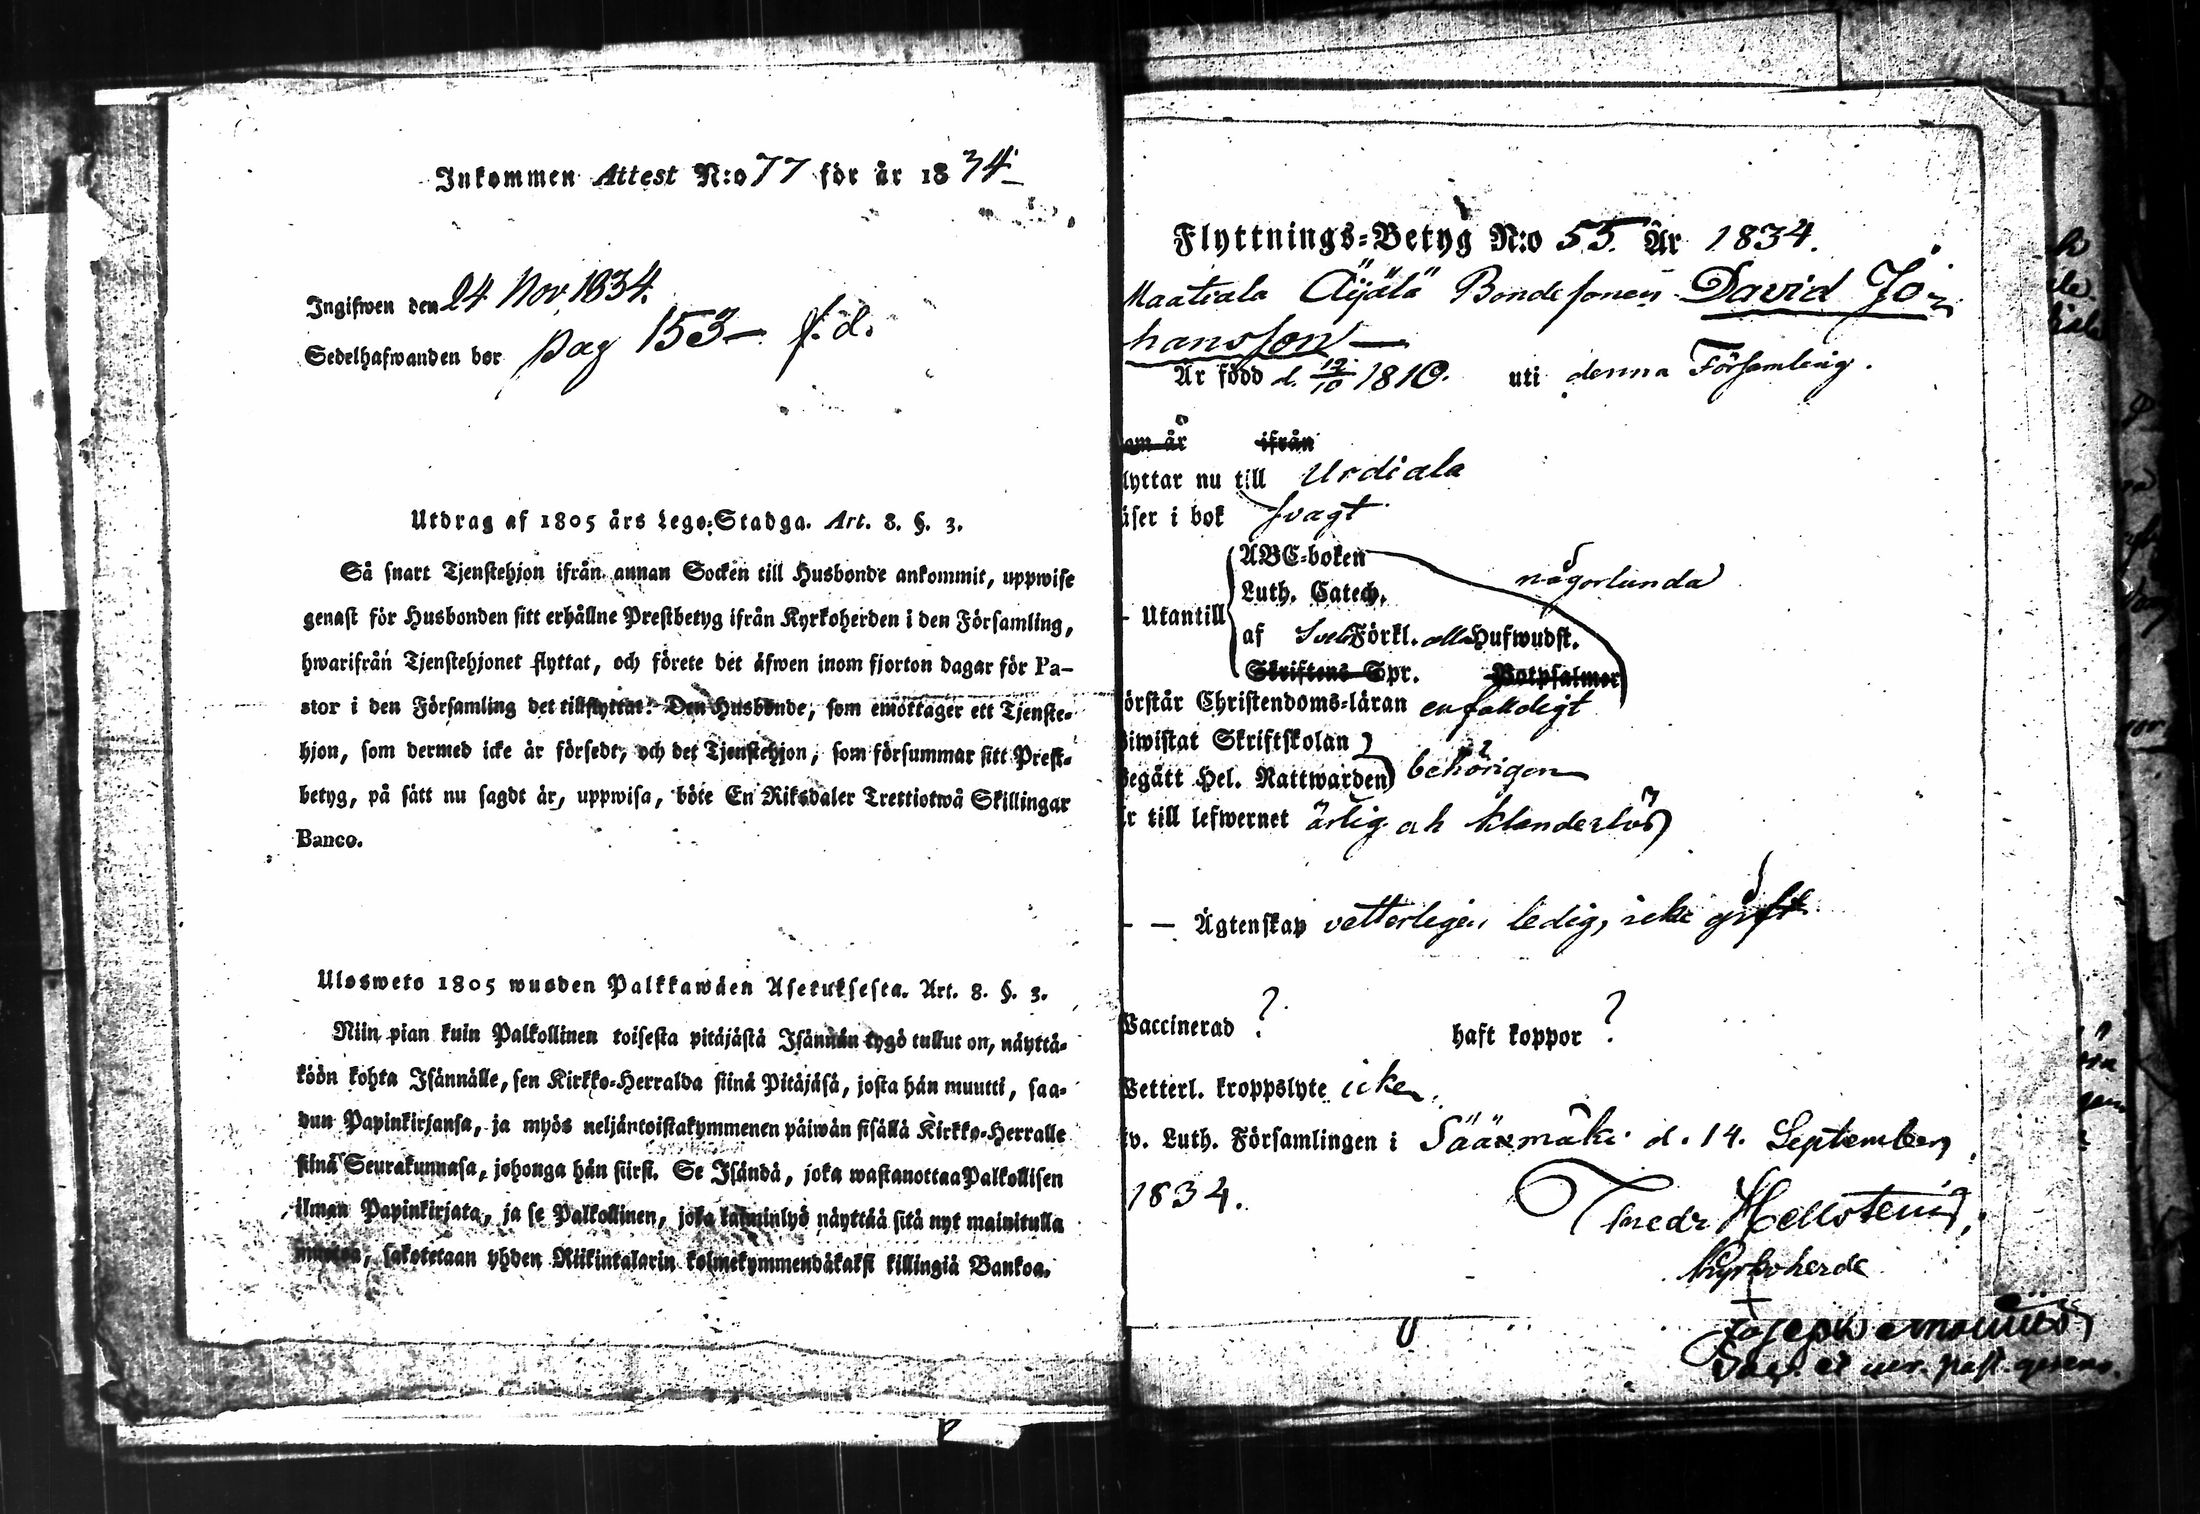 Inkommen Attest N:o 77 för år 1834
Ingifwen den 24 Nov. 1834.
Sedelhafwanden bor pag 153 – f. d.
Utdrag af 1805 års Lego-Stadga. Art. 8. §. 3.
Så snart Tjenstehjon ifrån annan Socken till Husbonde ankommit, uppwise
genast för Husbonden sitt erhållne Prestbetyg ifrån Kyrkoherden i den Församling,
hwarifrån Tjenstehjonet flyttat, och förete det äfwen inom fjorton dagar för Pa-
stor i den Församling det tillflyttat. Den Husbonde, som emottager ett Tjenste-
hjon, som dermed icke är försedt, och det Tjenstehjon, som försummar sitt Prest-
betyg, på sätt nu sagdt är, uppwisa, böte En Riksdaler Trettiotwå Skillingar
Banco.
Ulosweto 1805 wuoden Palkkawäen Asetuksesta. Art. 8. §. 3.
Niin pian kuin Palkollinen toisesta pitäjästä Isännän tygö tullut on, näyttä-
köön kohta Isännälle, sen Kirkko-Herralda siinä Pitäjäsä, josta hän muutti, saa-
dun Papinkirjansa, ja myös neljäntoistakymmenen päiwän sisällä Kirkko-Herralle
siinä Seurakunnasa, johonga hän siirsi. Se Isändä, joka wastanottaa Palkollisen
ilman Papinkirjata, ja se Palkollinen, joka laiminlyö näyttää sitä nyt mainitulla
muotoa, sakotetaan yhden Riikintalarin kolmekymmendäkaksi killingiä Bankoa.
Flyttnings-Betyg N:o 55. År 1834.
Maatiala Äyälä Bondesonen David Jo-
hansson
Är född d. 12/10 1810. uti denna Församling.
som är ifrån
lyttar nu till Urdiala
äser i bok svagt
ABC-boken
någorlunda
Luth. Catech.
- Utantill
af Sveb. Förkl. alla Hufwudst.
Skriftens Spr. Botpsalmer
örstår Christendoms-läran enfaldigt
Biwistat Skriftskolan
Begått Hel. Nattwarden behörigen
r till lefwernet ärlig och klanderlös
- — Ägtenskap vetterligen ledig, icke gift
Vaccinerad ? haft koppor ?
Vetterl. kroppslyte icke
v. Luth. Församlingen i Sääxmäki d. 14. September
1834.
Hellstenius,
Kyrkoherde
Joseph